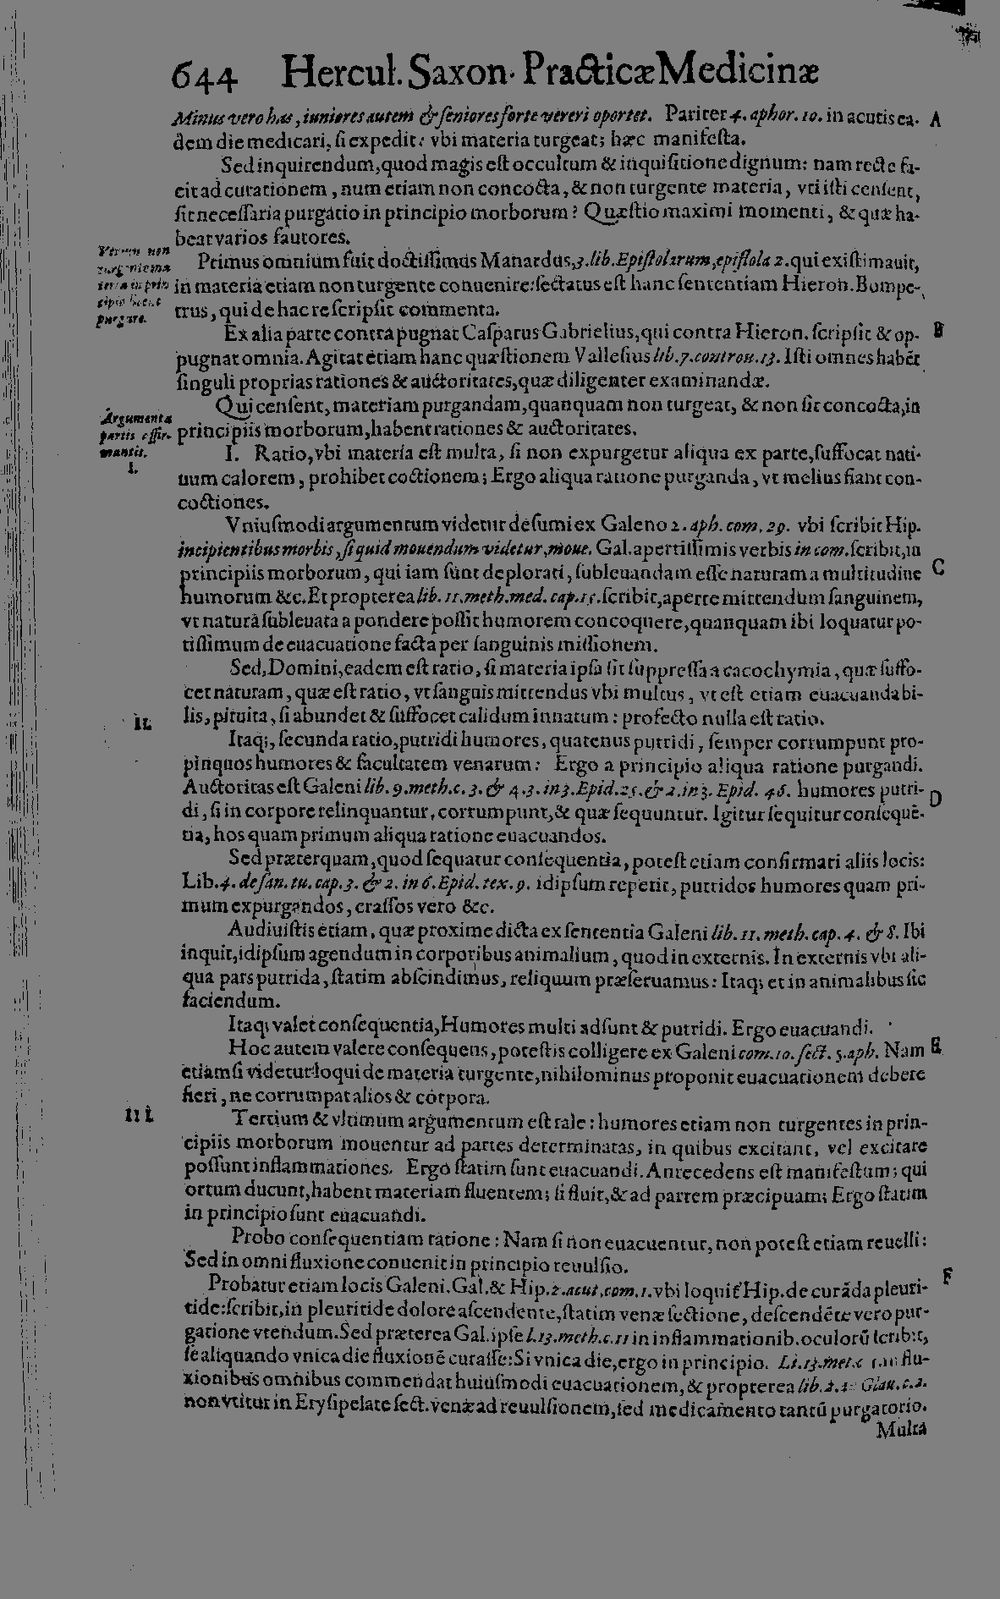 644 Hercul. Saxon. Practicæ Medicinæ
Minus vero has, iuniores autem & seniores forte vereri oportet. Pariter 4. aphor. 10. in acutis ea- A
dem die medicari, si expedit: vbi materia turgeat; hæc manifesta.
Sed inquirendum, quod magis est occultum & inquisitione dignum: nam recte fa-
cit ad curationem, num etiam non concocta, & non turgente materia, vti isti censent,
sit necessaria purgatio in principio morborum? Quæstio maximi momenti, & quæ ha-
beat varios fautores.
Vtrum non
turgente ma
teria in prin
cipio liceat
purgare.
Primus omnium fuit doctissimus Manardus, 3. lib. Epistolarum, epistola 2. qui existimauit,
in materia etiam non turgente conuenire: sectatus est hanc sententiam Hieron. Bompe-
trus, qui de hac re scripsit commenta.
Ex alia parte contra pugnat Casparus Gabrielius, qui contra Hieron. scripsit & op- B
pugnat omnia. Agitat etiam hanc quæstionem Vallesius lib. 7. controu. 13. Isti omnes habēt
singuli proprias rationes & auctoritates, quæ diligenter examinandæ.
Argumenta
partis affir-
mantis.
I.
Qui censent, materiam purgandam, quanquam non turgeat, & non sit concocta, in
principiis morborum, habent rationes & auctoritates.
I. Ratio, vbi materia est multa, si non expurgetur aliqua ex parte, suffocat nati-
uum calorem, prohibet coctionem; Ergo aliqua ratione purganda, vt melius fiant con-
coctiones.
Vniusmodi argumentum videtur desumi ex Galeno 2. aph. com. 29. vbi scribit Hip.
incipientibus morbis, si quid mouendum videtur, moue. Gal. apertissimis verbis in com. scribit, in
principiis morborum, qui iam sunt deplorati, subleuandam esse naturam a multitudine C
humorum &c. Et propterea lib. 11. meth. med. cap. 15. scribit, aperte mittendum sanguinem,
vt naturâ subleuata a pondere possit humorem concoquere, quanquam ibi loquatur po-
tissimum de euacuatione facta per sanguinis missionem.
Sed, Domini, eadem est ratio, si materia ipsa sit suppressa a cacochymia, quæ suffo-
cet naturam, quæ est ratio, vt sanguis mittendus vbi multus, vt est etiam euacuanda bi-
lis, pituita, si abundet & suffocet calidum innatum: profecto nulla est ratio.
II.
Itaq;, secunda ratio, putridi humores, quatenus putridi, semper corrumpunt pro-
pinquos humores & facultatem venarum: Ergo a principio aliqua ratione purgandi.
Auctoritas est Galeni lib. 9. meth. c. 3. & 4. 3. in 3. Epid. 25. & 2. in 3. Epid. 46. humores putri- D
di, si in corpore relinquantur, corrumpunt, & quæ sequuntur. Igitur sequitur consequē-
tia, hos quam primum aliqua ratione euacuandos.
Sed præterquam, quod sequatur consequentia, potest etiam confirmari aliis locis:
Lib. 4. de san. tu. cap. 3. & 2. in 6. Epid. tex. 9. idipsum reperit, putridos humores quam pri-
mum expurgandos, crassos vero &c.
Audiuistis etiam, quæ proxime dicta ex sententia Galeni lib. 11. meth. cap. 4. & 8. Ibi
inquit, idipsum agendum in corporibus animalium, quod in externis. In externis vbi ali-
qua pars putrida, statim abscindimus, reliquum præseruamus: Itaq; et in animalibus sic
faciendum.
Itaq; valet consequentia, Humores multi adsunt & putridi. Ergo euacuandi.
Hoc autem valere consequens, potestis colligere ex Galeni com. 10. sect. 5. aph. Nam E
etiamsi videtur loqui de materia turgente, nihilominus proponit euacuationem debere
fieri, ne corrumpat alios & corpora.
III.
Tertium & vltimum argumentum est tale: humores etiam non turgentes in prin-
cipiis morborum mouentur ad partes determinatas, in quibus excitant, vel excitare
possunt inflammationes. Ergo statim sunt euacuandi. Antecedens est manifestum; qui
ortum ducunt, habent materiam fluentem; si fluit, & ad partem præcipuam; Ergo statim
in principio sunt euacuandi.
Probo consequentiam ratione: Nam si non euacuentur, non potest etiam reuelli:
Sed in omni fluxione conuenit in principio reuulsio.
Probatur etiam locis Galeni. Gal. & Hip. 2. acut. com. 1. vbi loquit' Hip. de curāda pleuri- F
tide: scribit, in pleuritide dolore ascendente, statim venæ sectione, descendēte vero pur-
gatione vtendum. Sed præterea Gal. ipse l. 13. meth. c. 11 in inflammationib. oculorū scribit,
se aliquando vnica die fluxionē curasse: Si vnica die, ergo in principio. Li. 13. met. c flu-
xionibus omnibus commendat huiusmodi euacuationem, & propterea lib. 2. Glau. c. 2.
non vtitur in Erysipelate sect. venæ ad reuulsionem, sed medicamento tantū purgatorio.
Multa